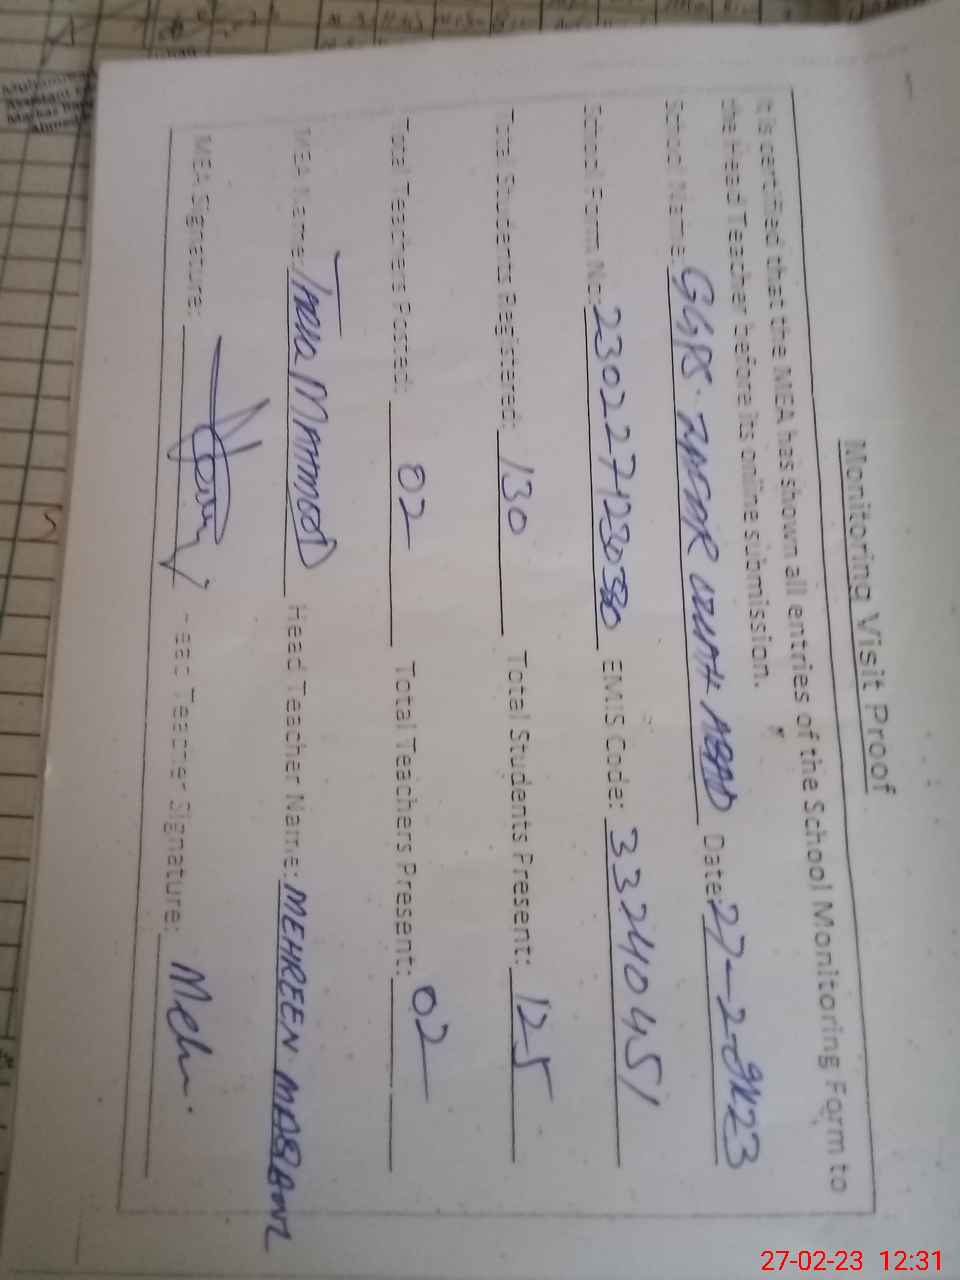 Monitoring Visit Proof
It is certified that the MEA has shown all entries of the School Monitoring Form to
the Head Teacher before its online submission.
School Name: GGPS. ZAFAR ULLAH ABAD Date: 27-2-2023
School Form No: EMIS Code: 33240451
Total Students Registered: 130 Total Students Present: 125
Total Teachers Posted: 02 Total Teachers Present: 02
MEA Name: Head Teacher Name: MEHREEN
MEA Signature: Head Teacher Signature: Mehr.
27-02-23 12:31